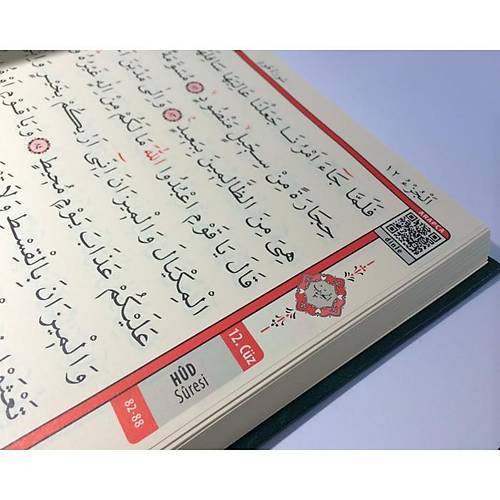 اَلْجُزْءُ ١٢
سُورَةُ هُودٍ
فَلَمَّا جَاءَ اَمْرُنَا جَعَلْنَا عَالِيَهَا سَافِلَهَا
حِجَارَةً مِنْ سِجّ۪يلٍ مَنْضُودٍ ﴿٨٢﴾ مُسَوَّمَةً
هِيَ مِنَ الظَّالِم۪ينَ بِبَع۪يدٍ ﴿٨٣﴾ وَاِلٰى مَدْيَنَ
قَالَ يَا قَوْمِ اعْبُدُوا اللّٰهَ مَا لَكُمْ مِنْ اِلٰهٍ غَيْرُهُ
الْمِكْيَالَ وَالْم۪يزَانَ اِنّ۪ي اَرٰيكُمْ بِخَيْرٍ
عَلَيْكُمْ عَذَابَ يَوْمٍ مُح۪يطٍ ﴿٨٤﴾ وَيَا قَوْمِ
وَالْم۪يزَانَ بِالْقِسْطِ وَلَا
تَعْثَوْا
ARAPÇA
dinle
12. Cüz
HÛD
Sûresi
82-88